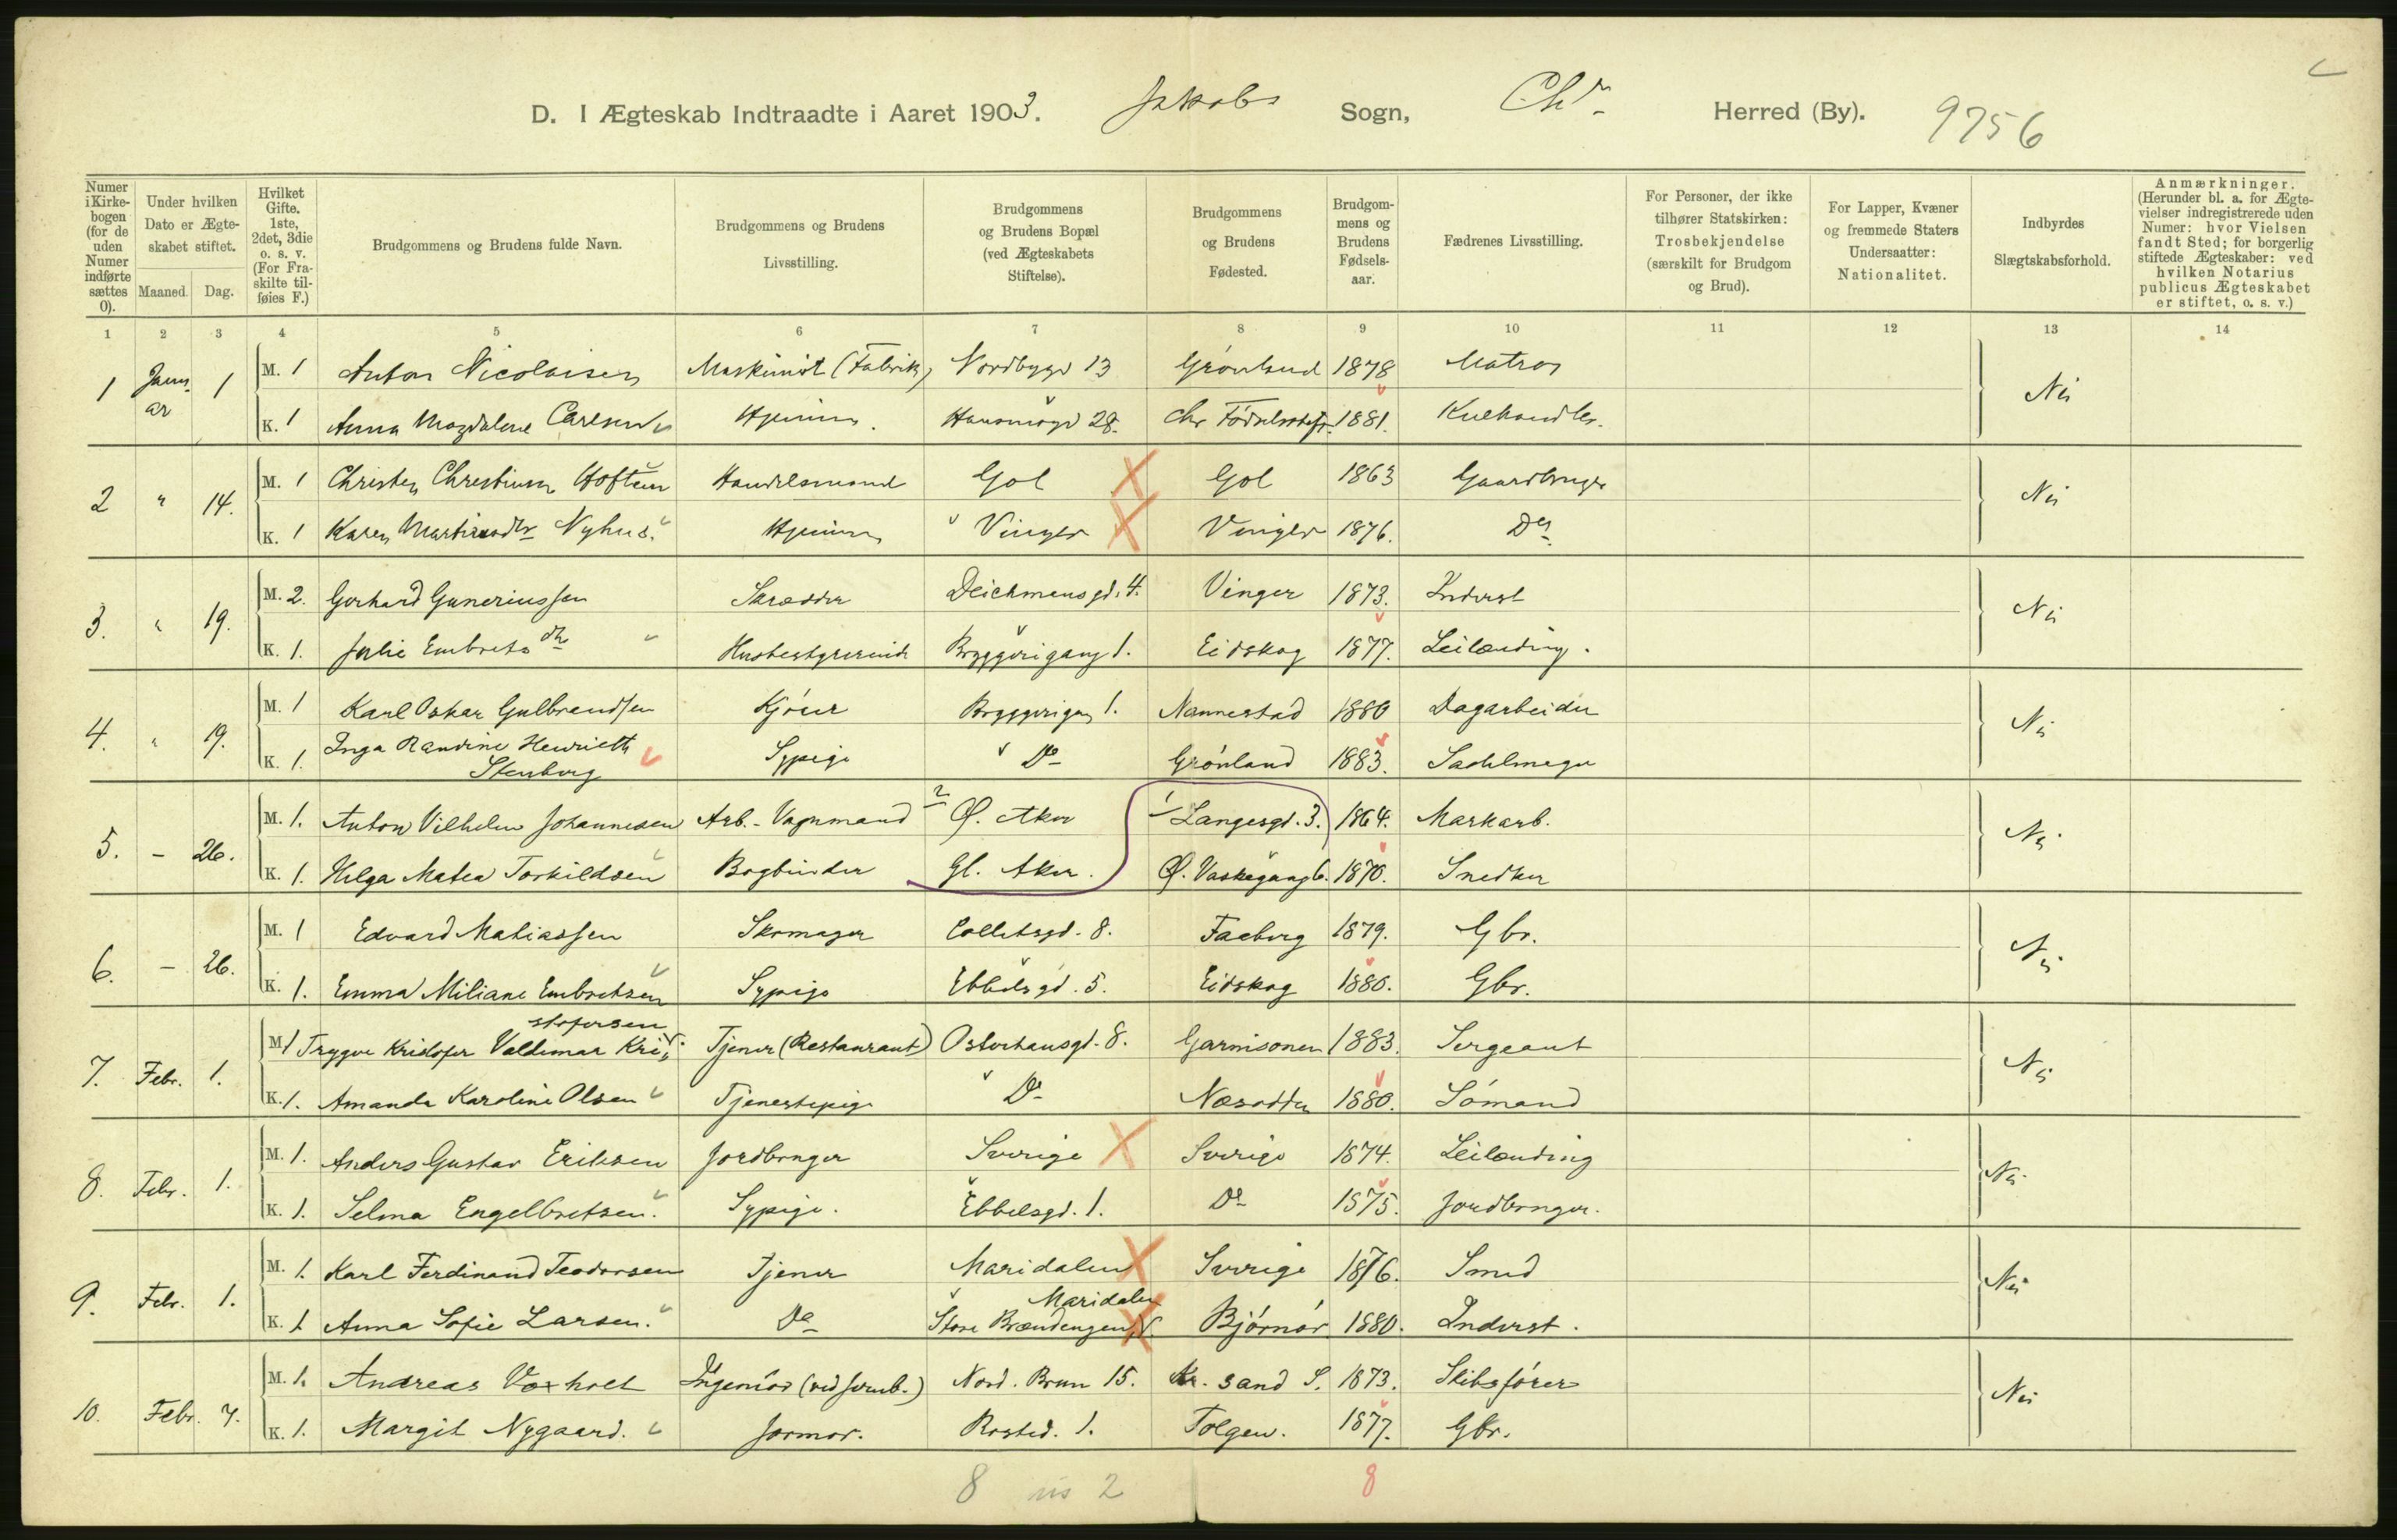 D. I Ægteskab Indtraadte i Aaret 1903. Jakobs Sogn, Chr. Herred (By). 9756
Numer i Kirkebogen (for de uden Numer indførte sættes 0).
Under hvilken Dato er Ægteskabet stiftet.
Maaned. Dag.
Hvilket Gifte. 1ste, 2det, 3die o. s. v. (For Fraskilte tilføies F.)
Brudgommens og Brudens fulde Navn.
Brudgommens og Brudens Livsstilling.
Brudgommens og Brudens Bopæl (ved Ægteskabets Stiftelse).
Brudgommens og Brudens Fødested.
Brudgommens og Brudens Fødselsaar.
Fædrenes Livsstilling.
For Personer, der ikke tilhører Statskirken: Trosbekjendelse (særskilt for Brudgom og Brud).
For Lapper, Kvæner og fremmede Staters Undersaatter: Nationalitet.
Indbyrdes Slægtskabsforhold.
Anmærkninger. (Herunder bl. a. for Ægtevielser indregistrerede uden Numer: hvor Vielsen fandt Sted; for borgerlig stiftede Ægteskaber: ved hvilken Notarius publicus Ægteskabet er stiftet, o. s. v.)
1 2 3 4 5 6 7 8 9 10 11 12 13 14
1 Januar 1 M. 1 Anton Nicolaisen Maskinist (Fabrik) Nordbygd 13 Grønland 1878 Matros Nei
K. 1 Anna Magdalene Carlsen Hjemme. Hausmsgd 28. Chr Fødselsstift. 1881. Kulhandler.
2 " 14. M. 1 Christen Christiansen Hoftun Handelsmand Gol Gol 1863 Gaardbruger Nei
K. 1 Karen Martinsdtr Nyhus. Hjemme Vinger Vinger 1876. Do
3. " 19. M. 2. Gerhard Gunerius sen Skrædder Deichmansgd. 4. Vinger 1873. Inderst Nei
K. 1. Julie Embrets dtr Husbestyrerinde Bryggerigang 1. Eidskog 1877. Leilænding.
4. " 19. M. 1 Karl Oskar Gulbrandsen Kjører Bryggerigang 1. Nannestad 1880 Dagarbeider Nei
K. 1. Inga Randine Henriette
Stenberg Sypige Do Grønland 1883. Sadelmager
5. - 26. M. 1. Anton Vilhelm Johannesen Arb.-Vognmand 2 Ø. Aker 1 Langesgd. 3. 1864. Markarb. Nei
K. 1. Helga Matea Torkildsen Bogbinder Gl. Aker. Ø. Vaskegang 6. 1870. Snedker
6. - 26. M. 1 Edvard Matiassen Skomager Colletsgd. 8. Faaberg 1879. Gbr. Nei
K. 1. Emma Miliane Embretsen Sypige Ebbelsgd. 5. Eidskog 1880. Gbr.
7. Febr. 1. M. 1 Trygve Kristofer Valdemar Kri-
stofersen Tjener (Restaurant) Osterhausgd. 8. Garnisonen 1883. Sergeant Nei
K. 1. Amanda Karoline Olsen Tjenestepige Do Næsodden 1880. Sømand
8. Febr. 1. M. 1. Anders Gustav Eriksen Jordbruger Sverige Sverige 1874. Leilænding Nei
K. 1. Selma Engelbretsen. Sypige. Ebbelsgd. 1. Do 1875. Jordbruger.
9. Febr. 1. M. 1. Karl Ferdinand Teodorsen Tjener Maridalen Sverige 1876. Smed Nei
K. 1 Anna Sofie Larsen. Do Store Brændengen Maridalen Bjørnør 1880. Inderst.
10. Febr. 7. M. 1. Andreas Voxholt Ingeniør (ved Jernb.) Nord. Brun 15. Kr.sand S. 1873. Skibsfører Nei
K. 1. Margit Nygaard. Jormor. Rosted. 1. Tolgen. 1877. Gbr.
8 2 8